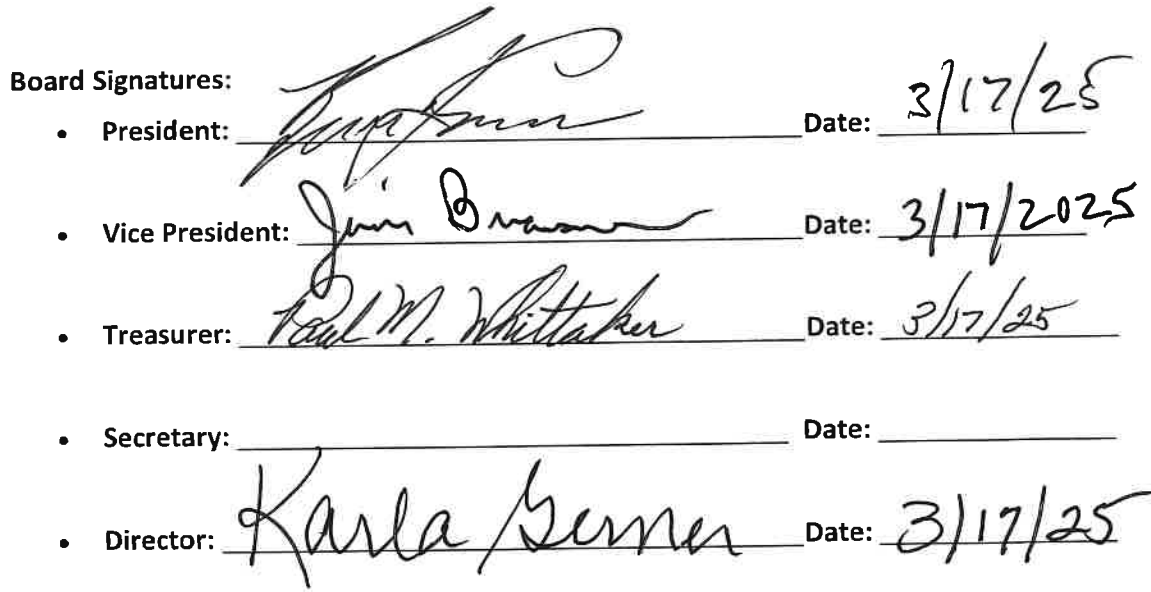 Board Signatures:
• President: Date: 3/17/25
• Vice President: Jim Date: 3/17/2025
• Treasurer: Paul M. Whittaker Date: 3/17/25
• Secretary: Date:
• Director: Karla Date: 3/17/25